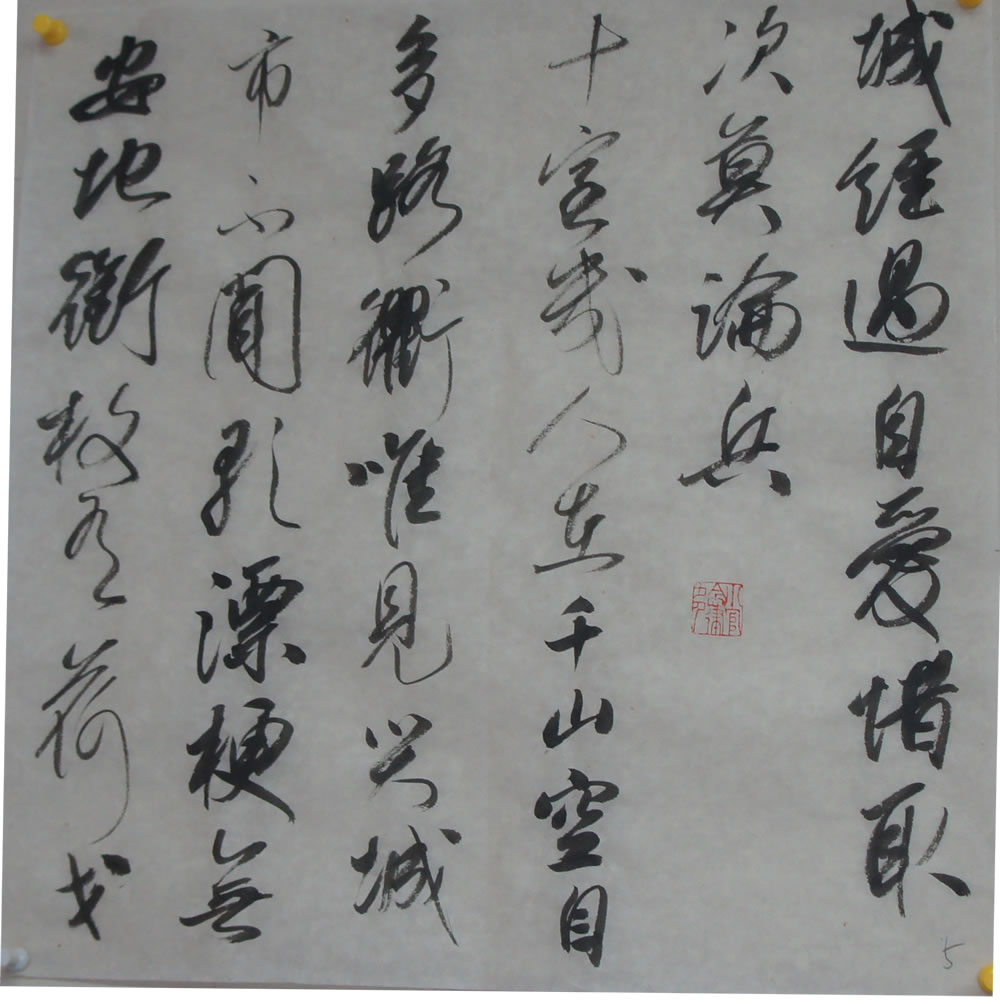 城經過自愛惜取
次莫論兵
十室幾人在千山空自
多路衢唯見哭城
市不聞歌漂梗無
安地銜枚有荷戈
5